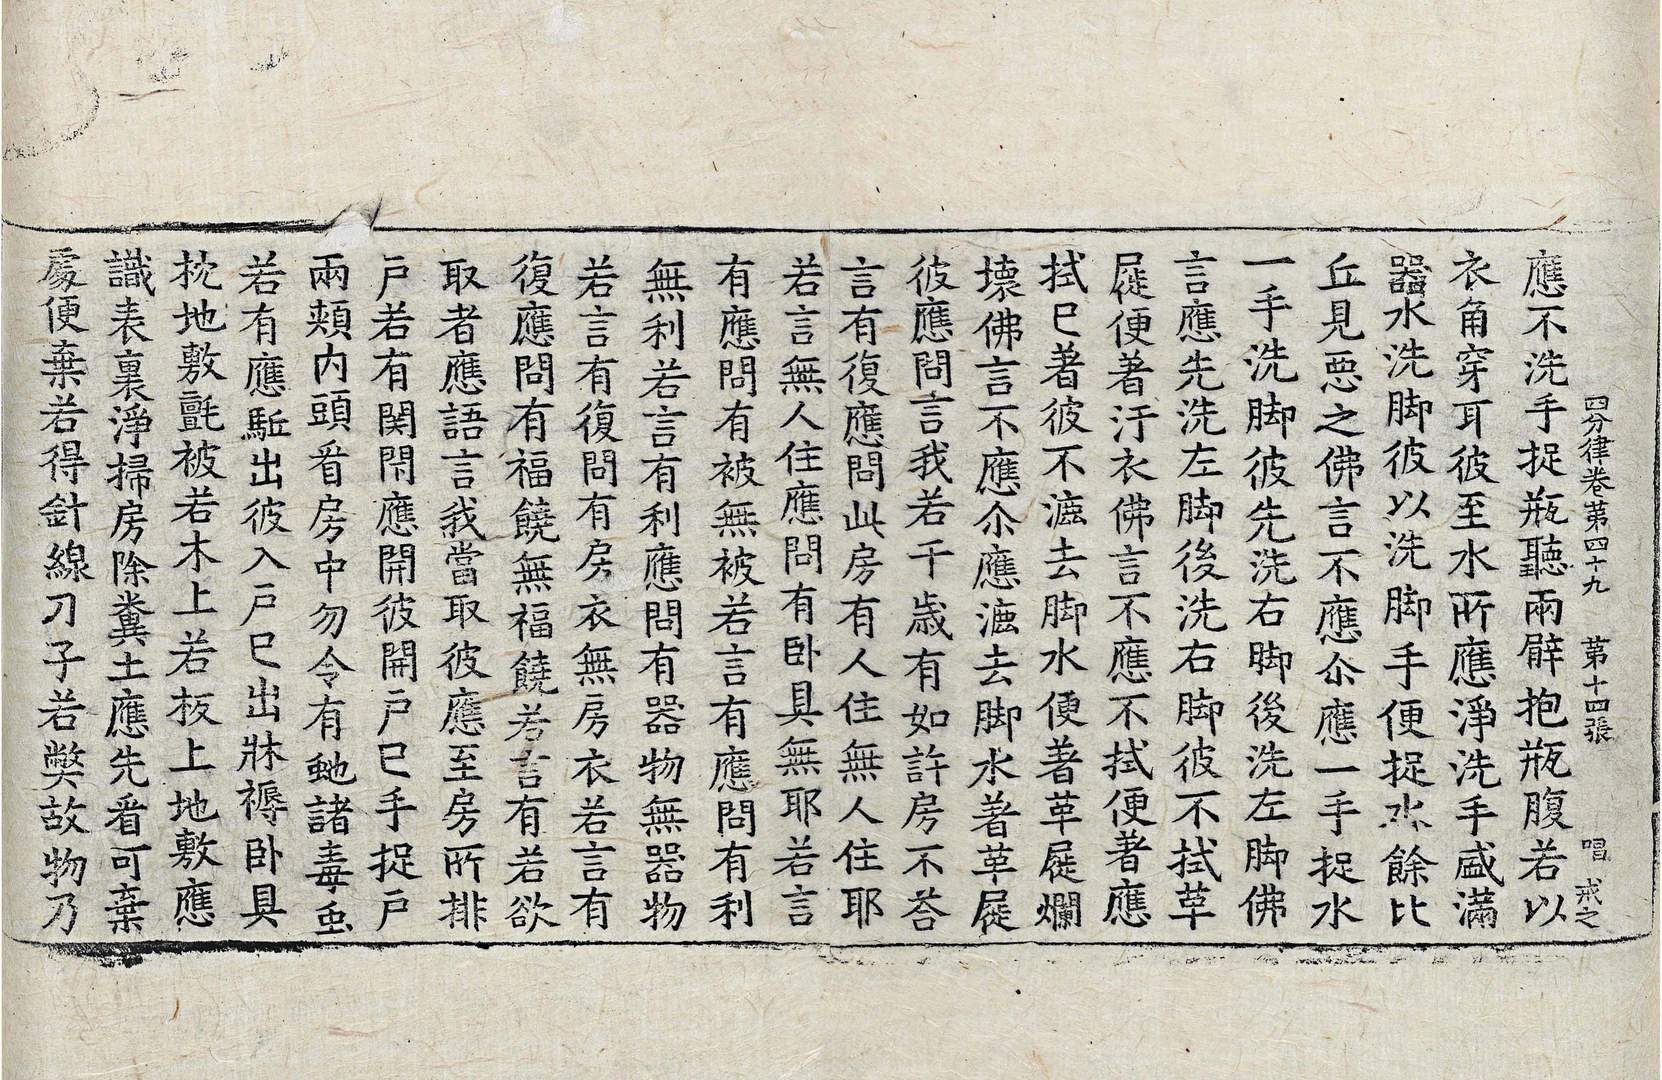 四分律卷第四十九 第十四張 唱 戒之
應不洗手捉瓶聽兩臂抱瓶腹若以
衣角穿耳彼至水所應淨洗手盛滿
器水洗脚彼以洗脚手便捉水餘比
丘見惡之佛言不應尒應一手捉水
一手洗脚彼先洗右脚後洗左脚佛
言應先洗左脚後洗右脚彼不拭草
屣便著汙衣佛言不應不拭便著應
拭已著彼不漉去脚水便著革屣爛
壞佛言不應尒應漉去脚水著革屣
彼應問言我若干歲有如許房不荅
言有復應問此房有人住無人住耶
若言無人住應問有卧具無耶若言
有應問有被無被若言有應問有利
無利若言有利應問有器物無器物
若言有復問有房衣無房衣若言有
復應問有福饒無福饒若言有若欲
取者應語言我當取彼應至房所排
戶若有関閇應開彼開戶已手捉戶
兩頰内頭看房中勿令有虵諸毒䖝
若有應駈出彼入戶已出牀褥卧具
枕地敷氈被若木上若板上地敷應
識表裏淨掃房除糞土應先看可棄
處便棄若得針線刀子若弊故物乃